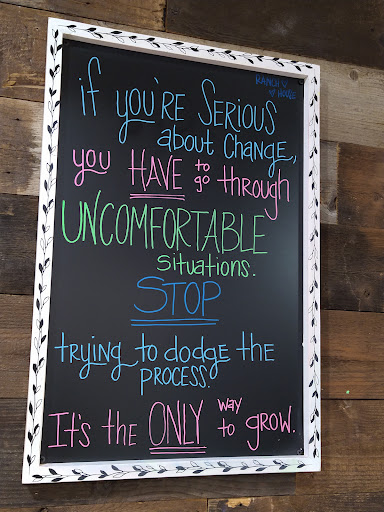 RANCH
HOUSE
if YOU'RE SERIOUS
about change,
you HAVE to go through
UNCOMFORTABLE
situations.
STOP
trying to dodge the
PROCESS.
It's the ONLY way to grow.